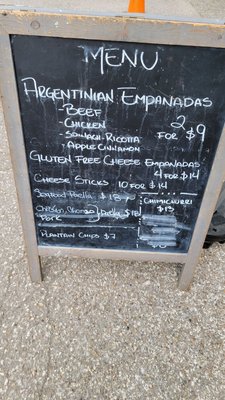 MENU
ARGENTINIAN EMPANADAS
- BEEF
- CHICKEN
- SPINACH-RICOTTA
- APPLE CINNAMON
2 FOR $9
GLUTEN FREE CHEESE EMPANADAS
4 FOR $14
CHEESE STICKS 10 FOR $14
SEAFOOD PAELLA $18
CHICKEN CHORIZO
PORK
PAELLA $18
CHIMICHURRI
$13
PLANTAIN CHIPS $7